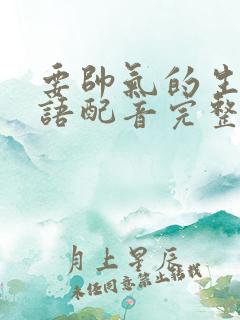 要帥氣的生
語配音完整
月上星辰
未经同意禁止转载